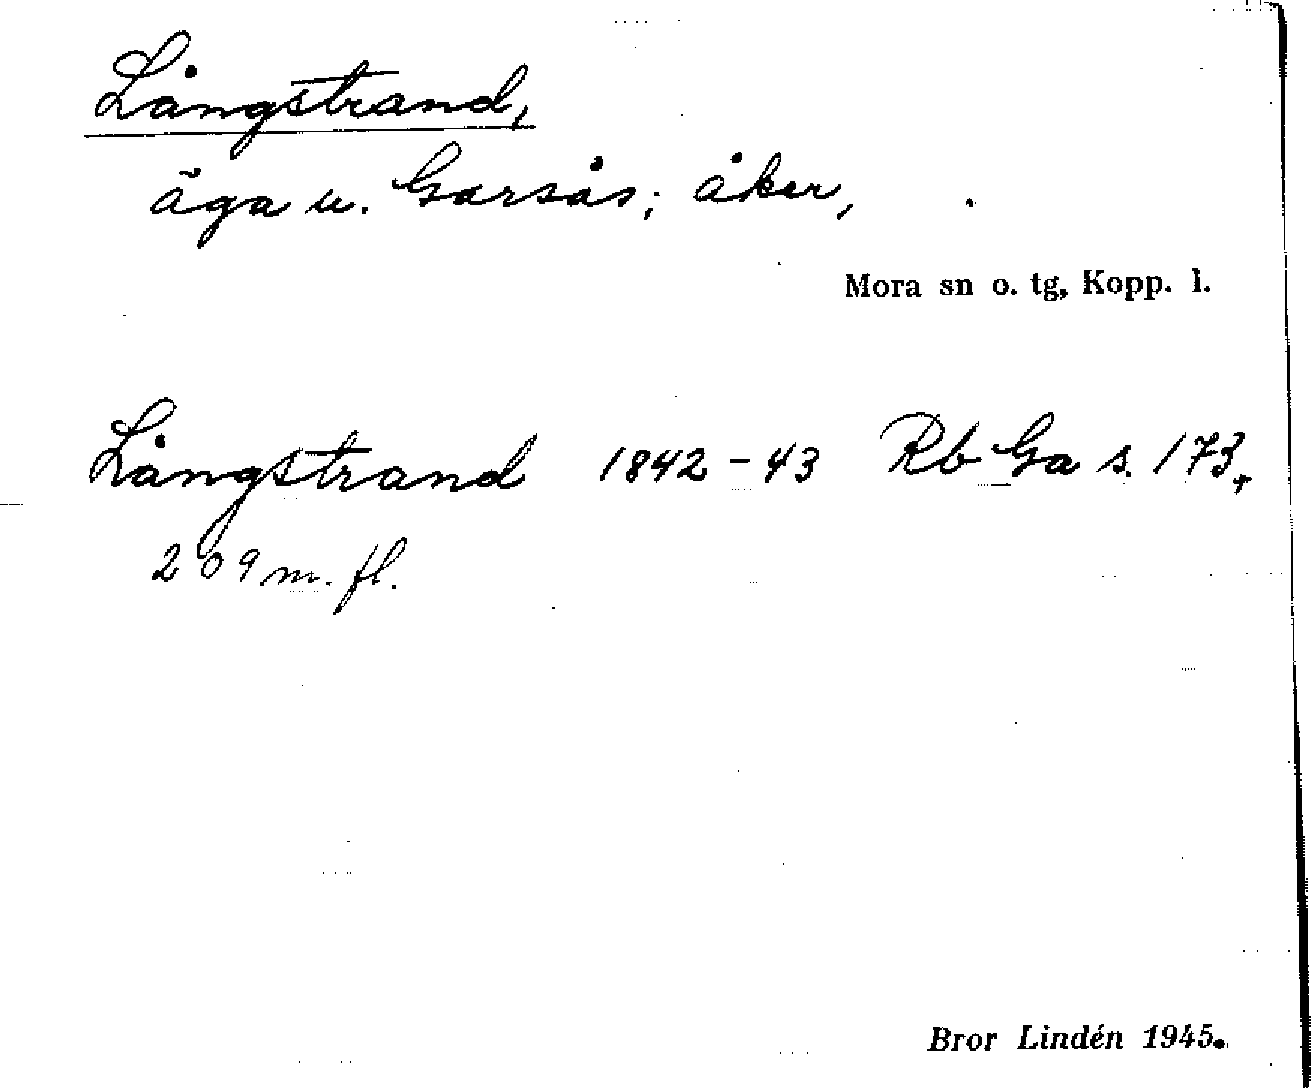 Långstrand,
äga u. Garsås; åker,
Mora sn o. tg, Kopp. l.
Långstrand 1842-43 Rb Ga s. 173,
209 m. fl.
Bror Lindén 1945.